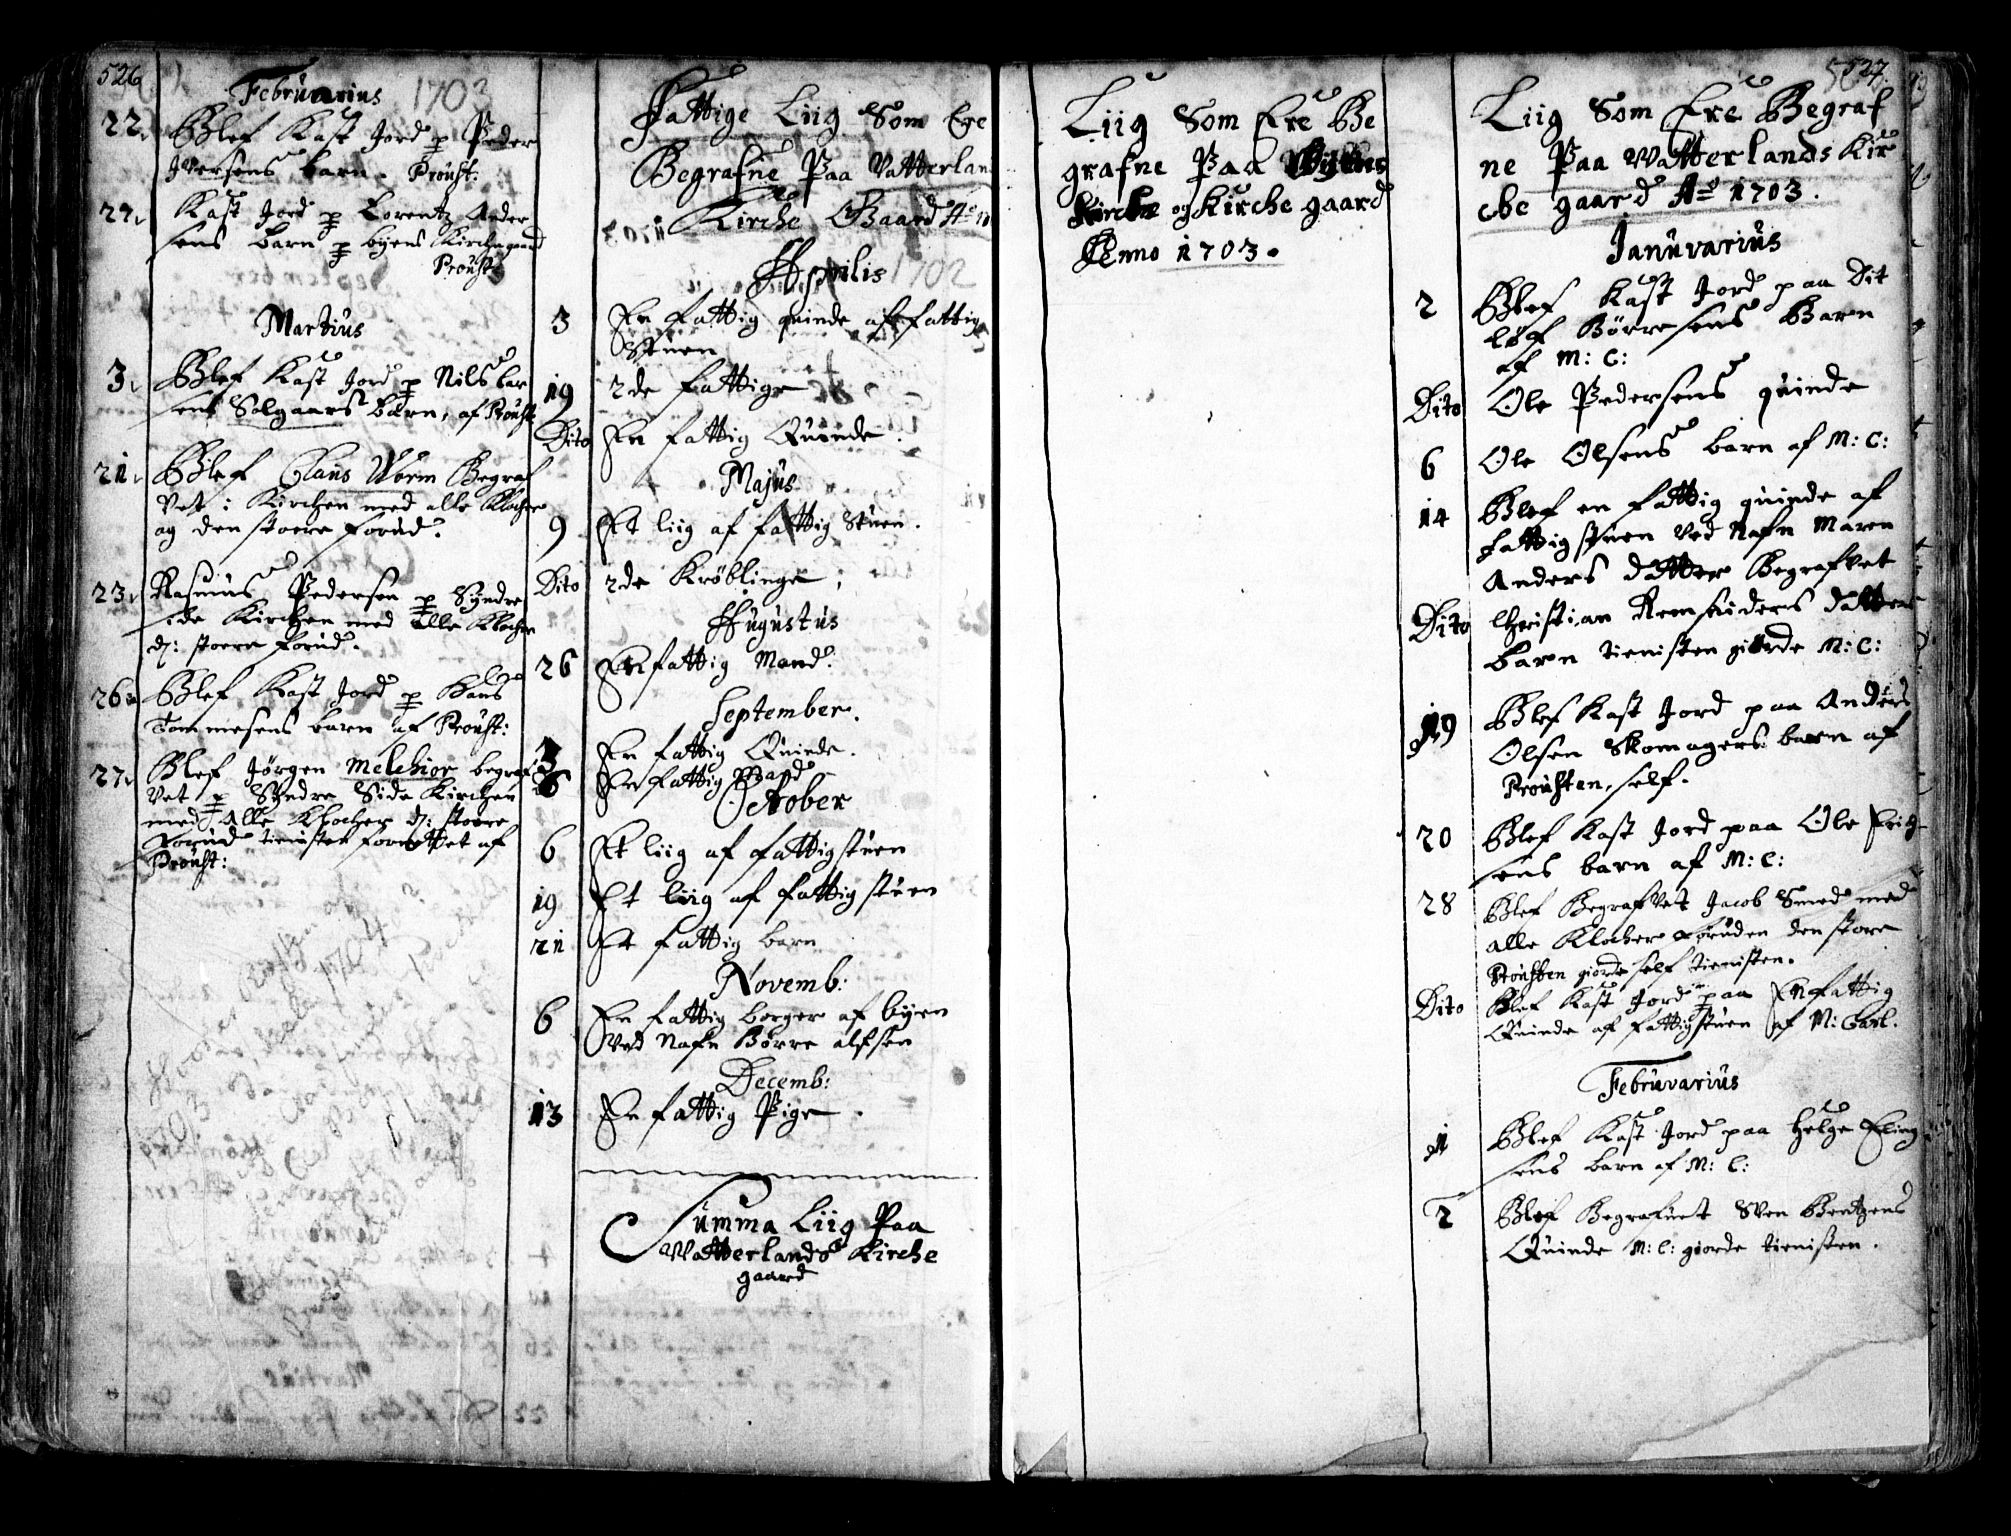 526
Februarius 1703
22. Blef Kast Jord p Peder
Iversens barn. Proust:
27. Kast Jord p Lorentz Ander
sens barn p byens Kirchegaard
Proust:
Martius
3. Blef Kast Jord p Nils lar
sens Solgaars barn, af Proust
21. Blef Claus Worm Begraf
vet i Kirchen med alle Klocher
og den stoere forud.
23. Rasmus Pedersen p Syndre
side Kirchen med alle Klocher
d: stoere forud.
26. Blef Kast Jord p Hans
Tommesens barn af Proust:
27. Blef Jørgen Melchior begraf
vet p Syndre Side Kirchen
med Alle Klocher d: stoere
Forud tienisten forrettet af
Proust:
Fattige Liig Som Ere
Begrafne Paa Vatterlan
Kirche Gaard Ao
Aprilis 1702
3 En fattig quinde af fattig
Stuen
19 2de fattige
Dito En fattig Quinde.
Majus
9 Et liig af fattig Stuen.
Dito 2de Krøblinge;
Augustus
26 En fattig Mand.
September.
3 En fattig Quinde.
8 En fattig Mand
October
6 Et liig af fattigstuen
19 Et liig af fattigstuen
21 Et fattig barn
Novemb:
6 En fattig borger af byen
Ved Nafn Børre alfsen
Decemb:
13 En fattig Pige.
Summa Liig Paa
Watterlands Kirche
gaard
Liig Som Ere Be
grafne Paa Byens
Kirche og Kirche gaard
Anno 1703.
527.
Liig Som Ere Begraf
ne Paa Watterlands Kir
che gaard Ao 1703.
Januvarius
2 Blef Kast Jord paa Dit
løf Børresens Barn
af M: C:
Dito Ole Pedersens quinde
6 Ole Olsens barn af M: C:
14 Blef en fattig quinde af
fattigstuen Ved Nafn Maren
Anders datter Begrafvet
Dito Christian Remsniders datters
barn tienisten giorde M: C:
19 Blef Kast Jord paa Anders
Olsen Skomagers barn af
Prousten self.
20 Blef Kast Jord paa Ole Erich
sens barn af M: C:
28 Blef Begrafvet Jacob Smed med
alle Klocher foruden den store
Prousten giorde self tienisten.
Dito Blef Kast Jord paa En fattig
Quinde af fattigstuen af M: Carl.
Februvarius
1 Blef Kast Jord paa Helge Eling
sens barn af M: C:
2 Blef Begrafuet Sven Bentzens
Quinde M: C: giorde tienisten.